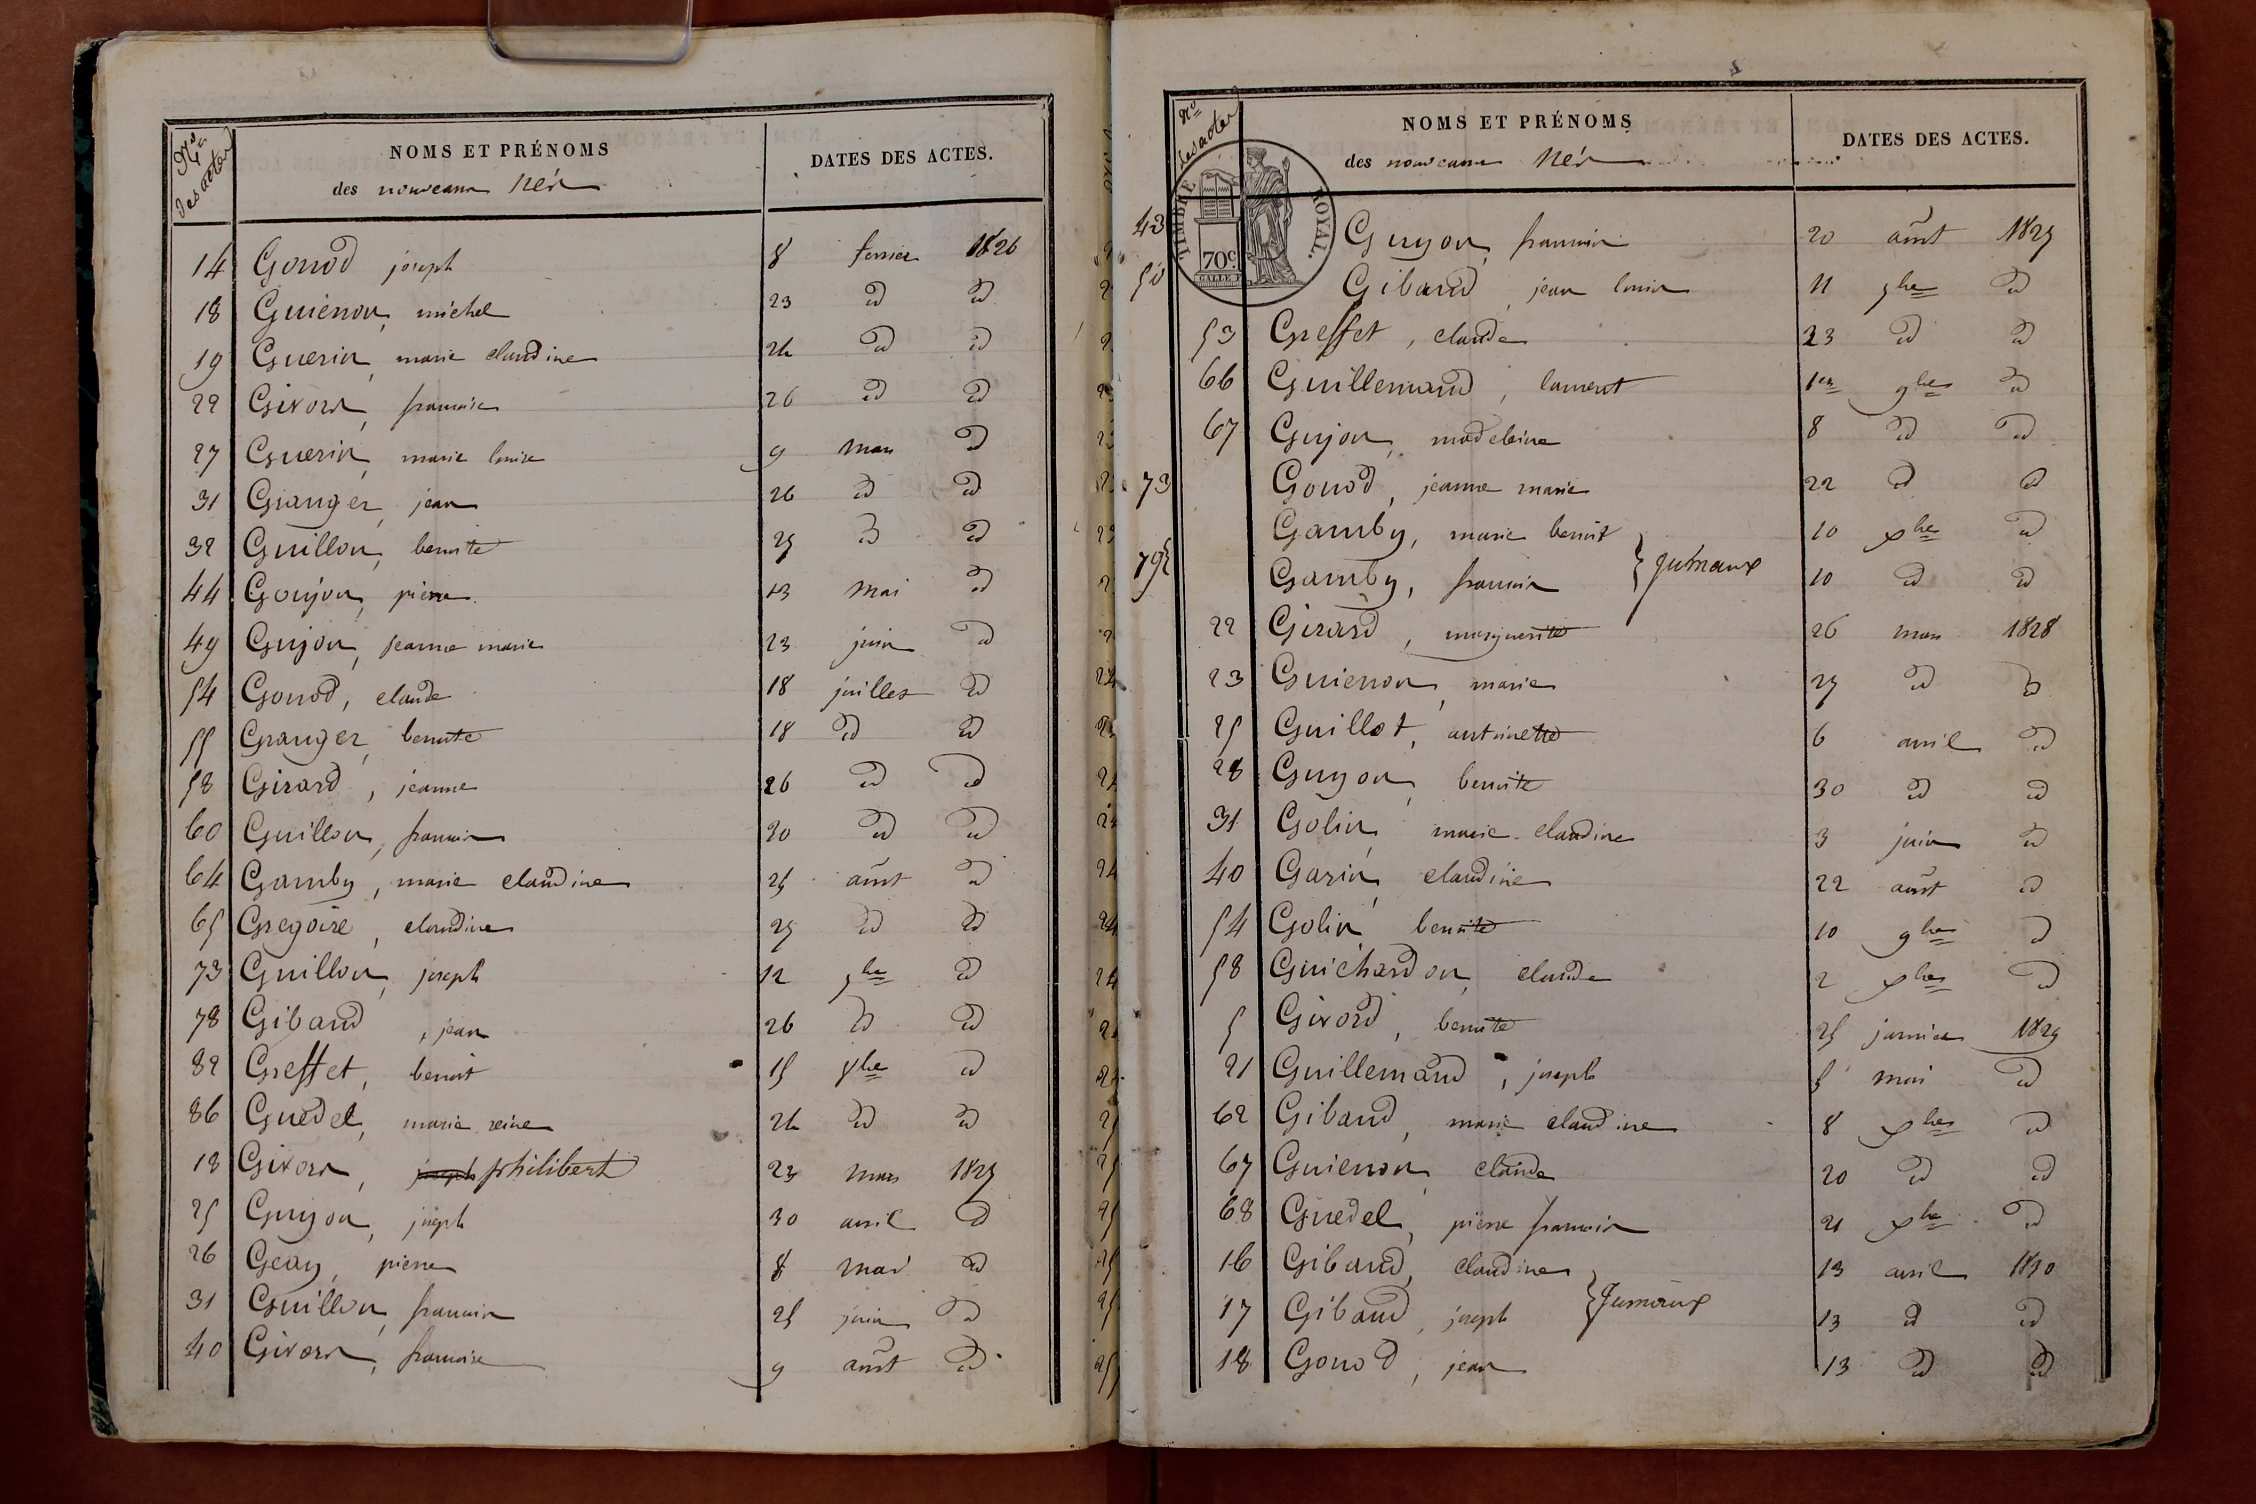 Nos des actes
NOMS ET PRÉNOMS
des nouveaux Nés
DATES DES ACTES.
14 Gonod joseph 8 fevrier 1826
18 Guienon, michel 23 id id
19 Guerin, marie claudine 24 id id
22 Givors, francoise 26 id id
27 Guerin, marie louise 9 mars id
31 Granger, jean 26 id id
32 Guillon, benoite 27 id id
44 Goujon, pierre 13 mai id
49 Gujon, jeanne marie 23 juin id
54 Gonod, claude 18 juillet id
55 Granger, benoite 18 id id
58 Girard, jeanne 26 id id
60 Guillon, francois 30 id id
64 Gamby, marie claudine 25 août id
65 Gregoire, claudine 27 id id
73 Guillon, joseph 12 9bre id
78 Giband, jean 26 id id
82 Greffet, benoit 15 xbre id
86 Guedel, marie reine 24 id id
18 Givors, joseph philibert 23 mars 1827
25 Guyon, joseph 30 avril id
26 Geay, pierre 8 mai id
31 Guillon, francois 25 juin id
40 Givors, francoise 9 août id
Nos des actes
NOMS ET PRÉNOMS
des nouveaux Nés
DATES DES ACTES.
TIMBRE ROYAL.
70c.
43 Guyon, francois 20 août 1827
50 Giband, jean louis 11 9bre id
53 Greffet, claude 23 id id
66 Guillemand, laurent 1er 9bre id
67 Gujon, madeleine 8 id id
73 Gonod, jeanne marie 22 id id
Gamby, marie benoit 10 xbre id
79 Gamby, francois } Jumeaux 10 id id
22 Girard, marguerite 26 mars 1828
23 Guienon, marie 27 id id
25 Guillot, antoinette 6 avril id
28 Guyon, benoite 30 id id
31 Golin, marie claudine 3 juin id
40 Garin, claudine 22 août id
54 Golin benoite 10 9bre id
58 Guichardon, claude 2 xbre id
5 Givord, benoite 25 janvier 1829
21 Guillemand, joseph 5 mai id
62 Giband, marie claudine 8 xbre id
67 Guienon, claude 20 id id
68 Guedel, pierre francois 21 xbre id
16 Giband, claudine 13 avril 1830
17 Giband, joseph } Jumeaux 13 id id
18 Gonod, jean 13 id id